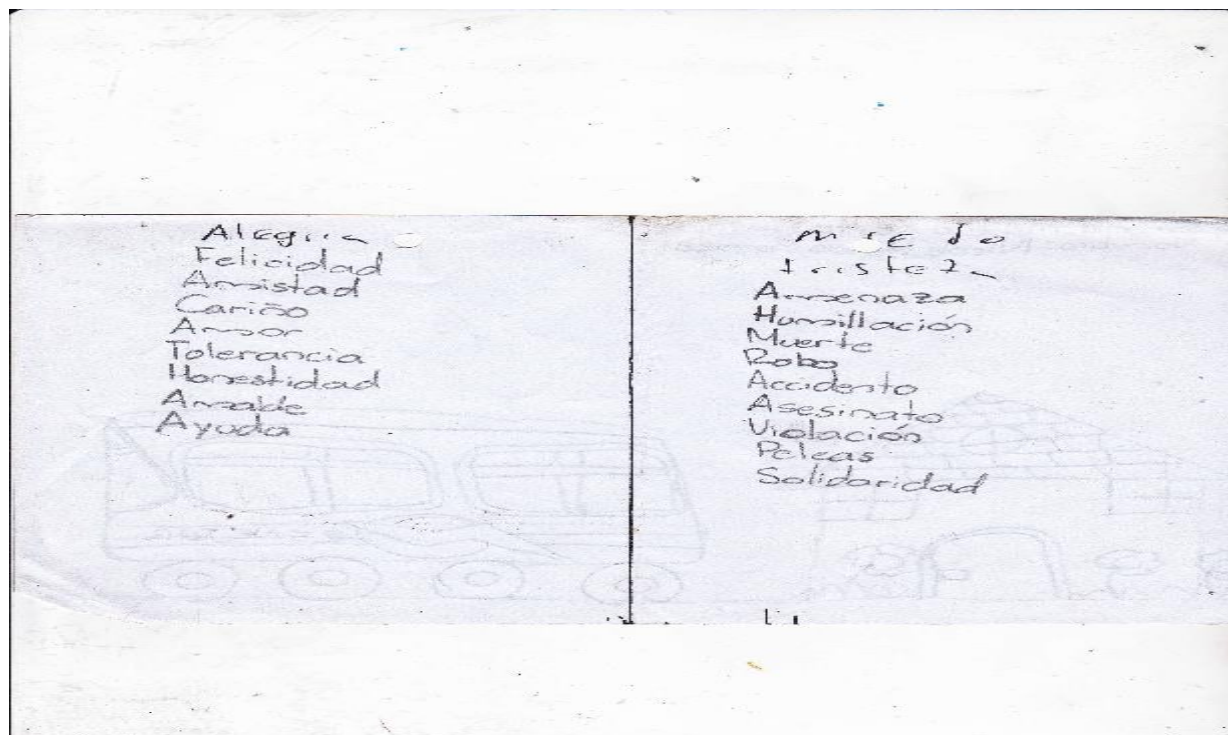 Alegria
Felicidad
Amistad
Cariño
Amor
Tolerancia
Honestidad
Amable
Ayuda
miedo
tristeza
Amenaza
Humillación
Muerte
Robo
Accidento
Asesinato
Violación
Peleas
Solidaridad